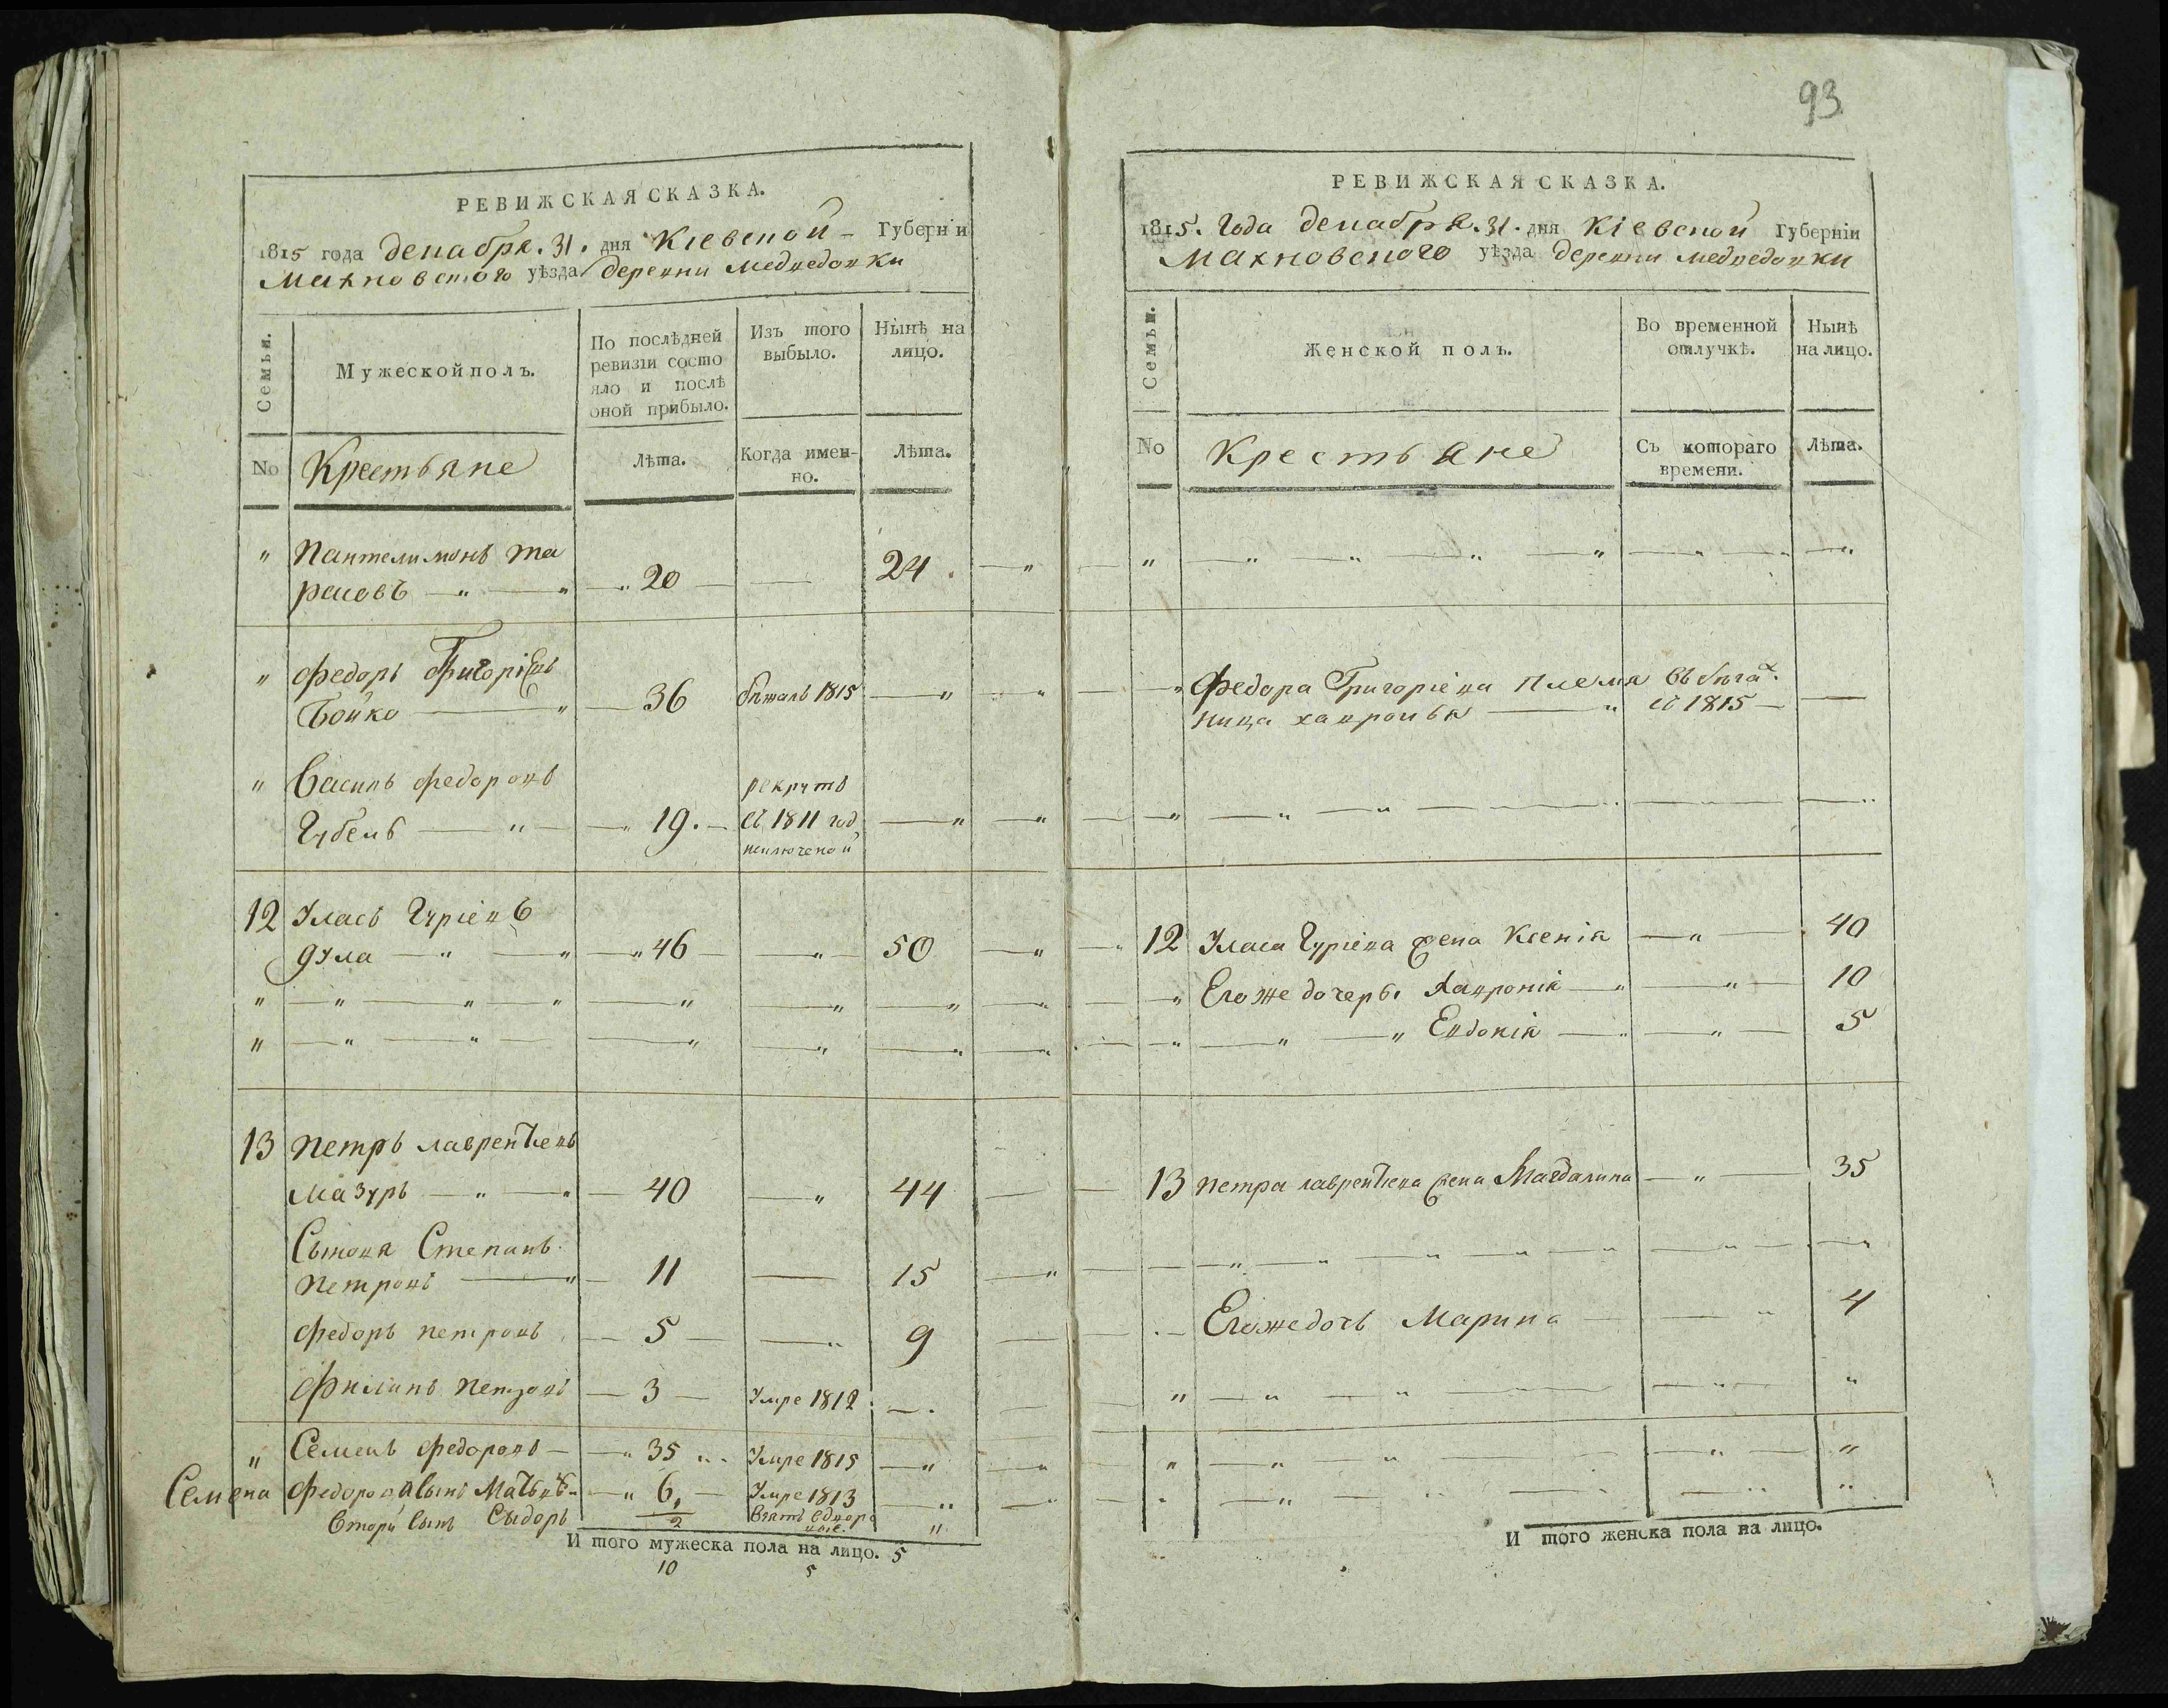 93
РЕВИЖСКАЯ СКАЗКА.
1815 года декабря. 31. дня Кіевской Губерніи
Махновского уѣзда деревни Медведовки
Семьи.
Мужеской полъ.
По послѣдней
ревизіи состо
яло и послѣ
оной прибыло.
Изъ того
выбыло.
Нынѣ на
лицо.
No
Крестьяне
Лѣта.
Когда имен-
но.
Лѣта.
" Пантелимонъ Та
расовъ 20 24
" Федоръ Григоріевъ
Бойко 36 бѣжалъ 1815
" Василь Федоровъ рекрутъ
Губель 19. съ 1811 год
12 Уласъ Гуріевъ
Дула 46 50
13 Петръ Лаврентіевъ
Мазуръ 40 44
Сыновя Степанъ
Петровъ 11 15
Федоръ Петровъ 5 9
Филипъ Петровъ 3 Умре 1812
" Семенъ Федоровъ 35 Умре 1815
Семена Федорова сынъ 6, Умре 1813
Вторй сынъ Сыдоръ 2
И того мужеска пола на лицо. 5
10 5
РЕВИЖСКАЯ СКАЗКА.
1815. года декабря. 31. дня Кіевской Губерніи
Махновского уѣзда деревни Медведовки
Семьи.
Женской полъ.
Во временной
отлучкѣ.
Нынѣ
на лицо.
No
Крестьяне
Съ котораго
времени.
Лѣта.
" Федора Григоріева племя въ бѣгах
ница съ 1815
12 Уласа Гуріева жена Ксенія 40
Егоже дочеры Хавронія 10
" Евдокія 5
13 Петра Лаврентіева жена Магдалина 35
Егоже дочь Марина 4
И того женска пола на лицо.